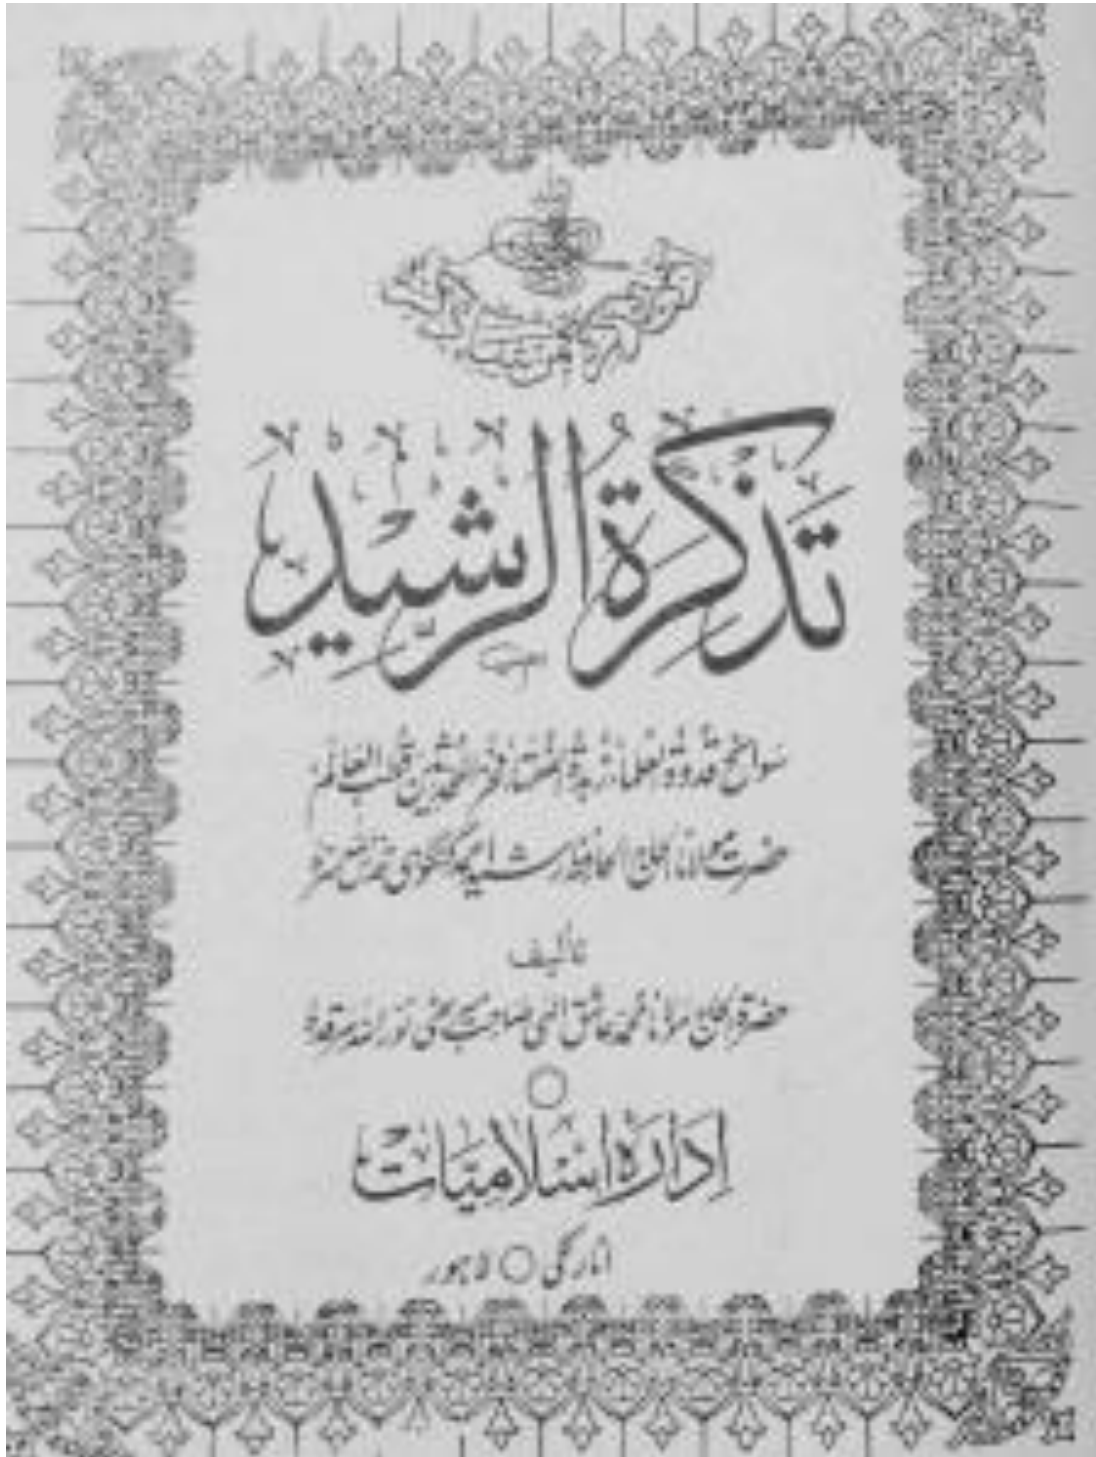 تذکرۃ الرشید
سوانح قدوۃ العلماء زبدۃ الفقہاء فخر المحدثین قطب العالم
حضرت مولانا الحاج الحافظ رشید احمد گنگوہی قدس سرہ
تألیف
حضرۃ الحاج مولانا محمد عاشق الٰہی صاحب میرٹھی نور اللہ مرقدہٗ
ادارۂ اسلامیات
انارکلی ○ لاہور